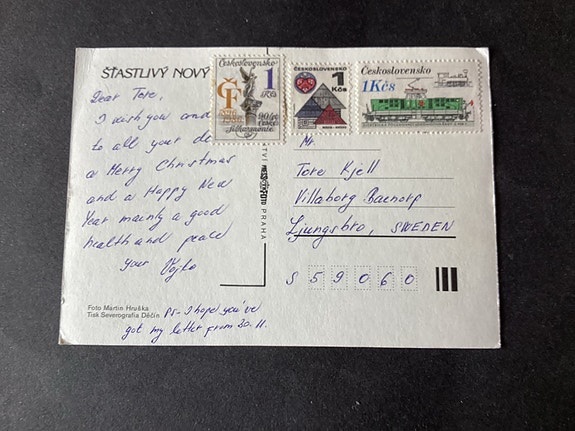 ŠŤASTLIVÝ NOVÝ
Dear Tore,
I wish you and
to all your de
a Merry Christmas
and a Happy New
Year mainly a good
health and peace
your Vojta
Foto Martin Hruška
Tisk Severografia Děčín
PS - I hope you've
got my letter from 20.11.
PRESSFOTO PRAHA
Československo
1
Kčs
ČF
90 let
České
filharmonie
ČESKOSLOVENSKO
1
Kčs
Československo
1Kčs
Mr.
Tore Kjell
Villaborg Baenorp
Ljungsbro, SWEDEN
S 59060